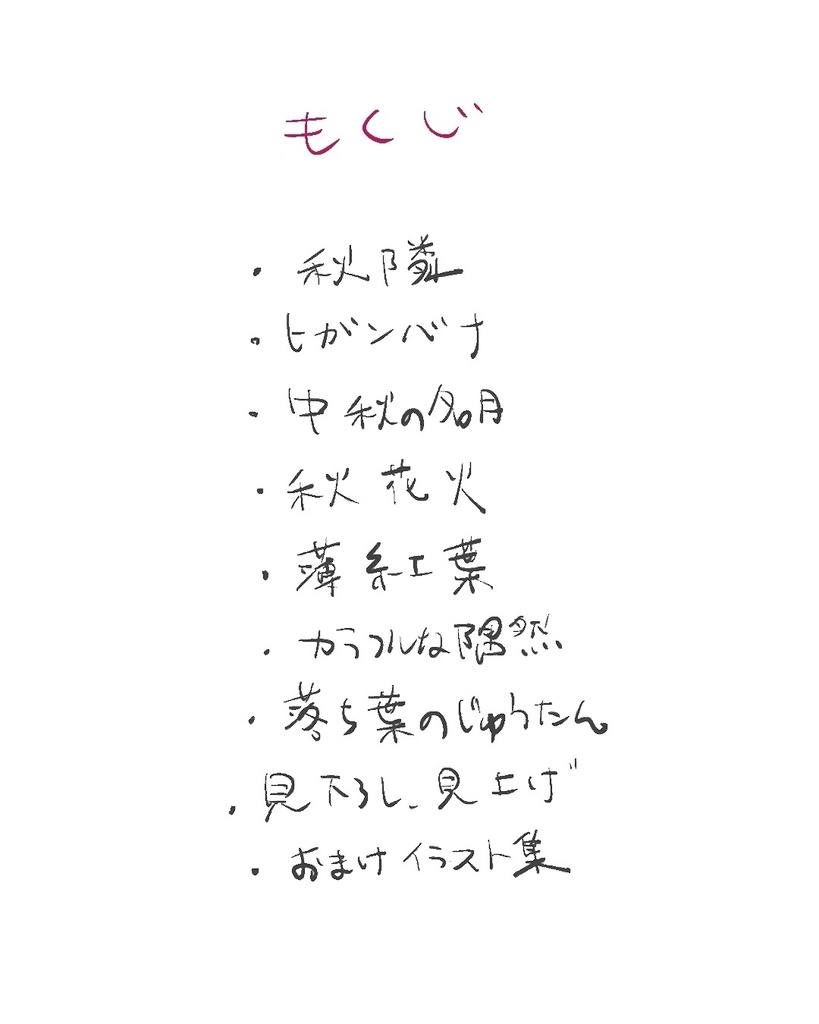 もくじ
・秋隣
・ヒガンバナ
・中秋の名月
・秋花火
・薄紅葉
・カラフルな隅然
・落ち葉のじゅうたん
・見下ろし、見上げ
・おまけイラスト集